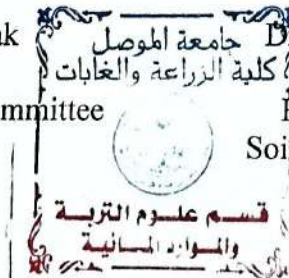 جامعة الموصل
كلية الزراعة والغابات
mmittee
Soi
قسم علوم التربة
والموارد المائية